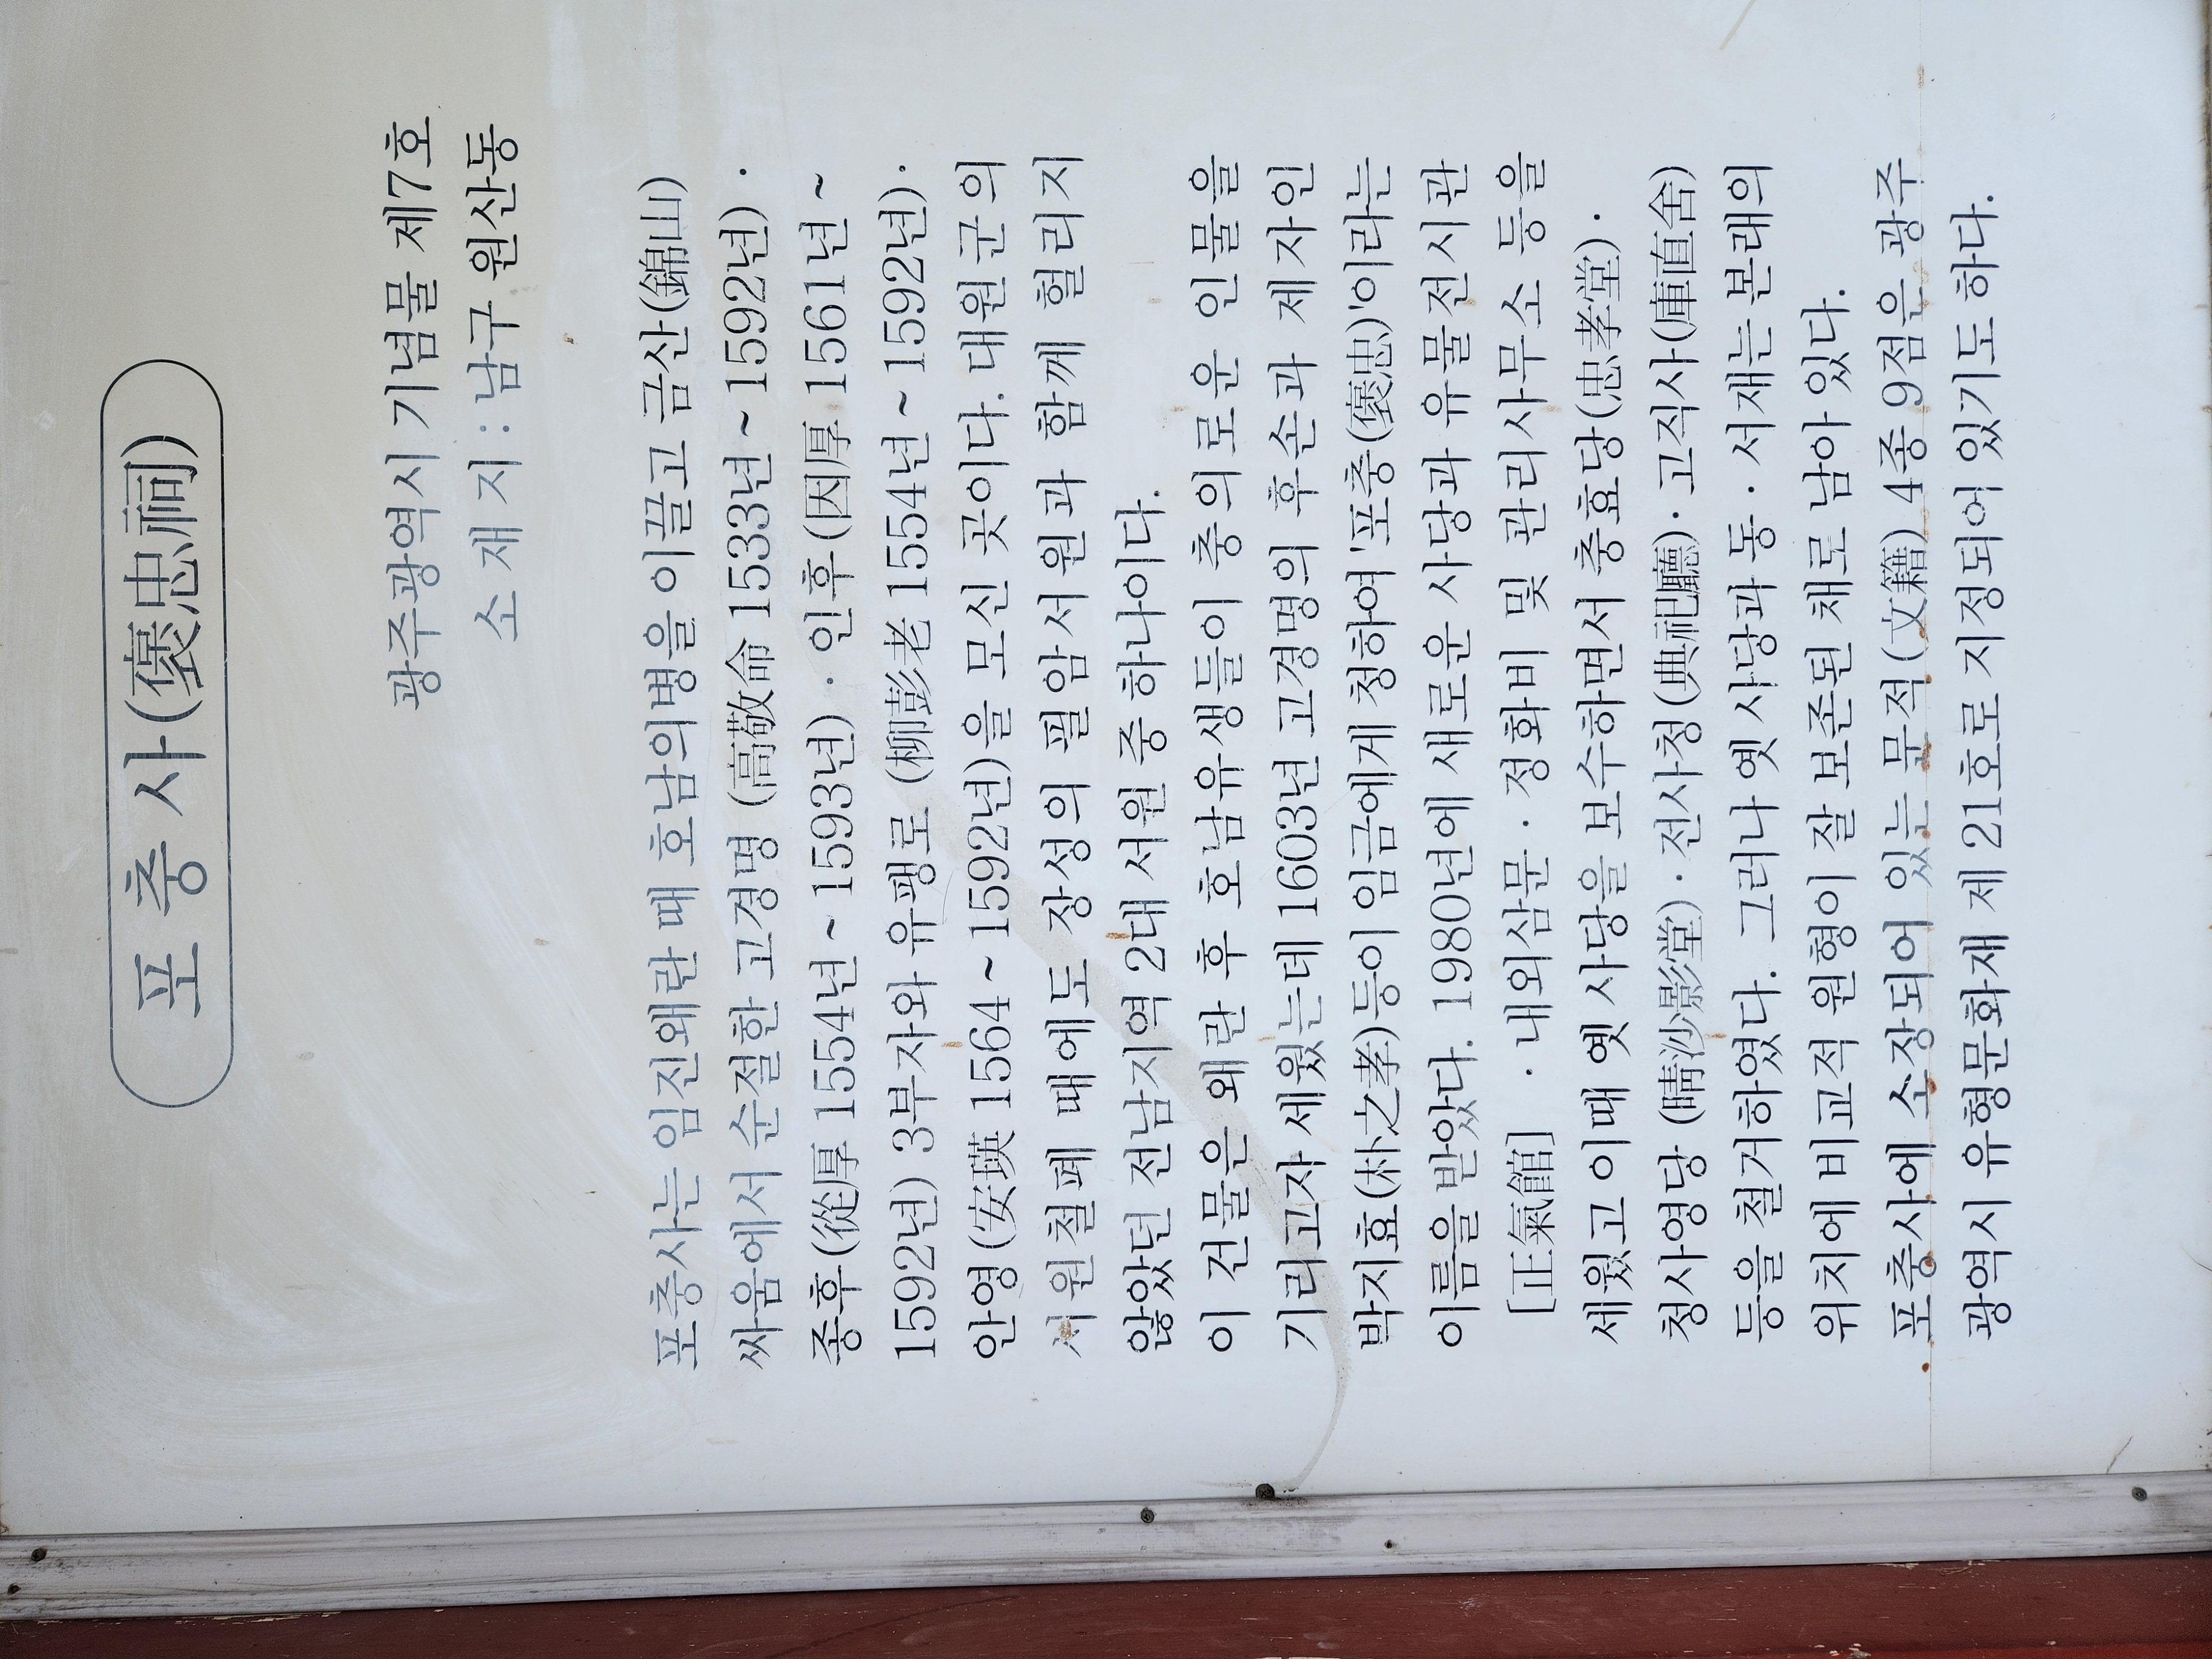 포충사(褒忠祠)
광주광역시 기념물 제7호
소재지 : 남구 원산동
포충사는 임진왜란 때 호남의병을 이끌고 금산(錦山)
싸움에서 순절한 고경명 (高敬命 1533년 ~ 1592년) ·
종후(從厚 1554년 ~ 1593년) · 인후(因厚 1561년 ~
1592년) 3부자와 유팽로 (柳彭老 1554년 ~ 1592년) ·
안영(安瑛 1564 ~ 1592년)을 모신 곳이다. 대원군의
서원철폐 때에도 장성의 필암서원과 함께 헐리지
않았던 전남지역 2대 서원 중 하나이다.
이 건물은 왜란 후 호남유생들이 충의로운 인물을
기리고자 세웠는데 1603년 고경명의 후손과 제자인
박지효(朴之孝)등이 임금에게 청하여 '포충(褒忠)'이라는
이름을 받았다. 1980년에 새로운 사당과 유물전시관
[正氣館] · 내외삼문 · 정화비 및 관리사무소 등을
세웠고 이때 옛 사당을 보수하면서 충효당(忠孝堂) ·
청사영당 (晴沙影堂) · 전사청(典祀廳) · 고직사(庫直舍)
등을 철거하였다. 그러나 옛 사당과 동 · 서재는 본래의
위치에 비교적 원형이 잘 보존된 채로 남아 있다.
포충사에 소장되어 있는 문적(文籍) 4종 9점은 광주
광역시 유형문화재 제 21호로 지정되어 있기도 하다.